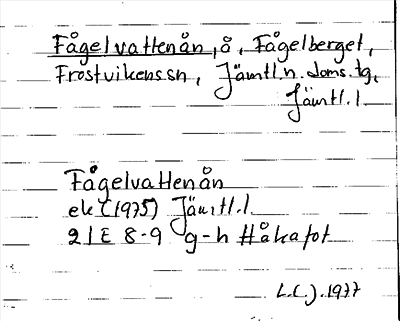 Fågelvattenån, å, Fågelberget,
Frostvikens sn, Jämtl. n. doms. tg,
Jämtl. l.
Fågelvattenån
ek (1975) Jämtl. l
21E 8-9 g-h Håkafot
L.C.J. 1977